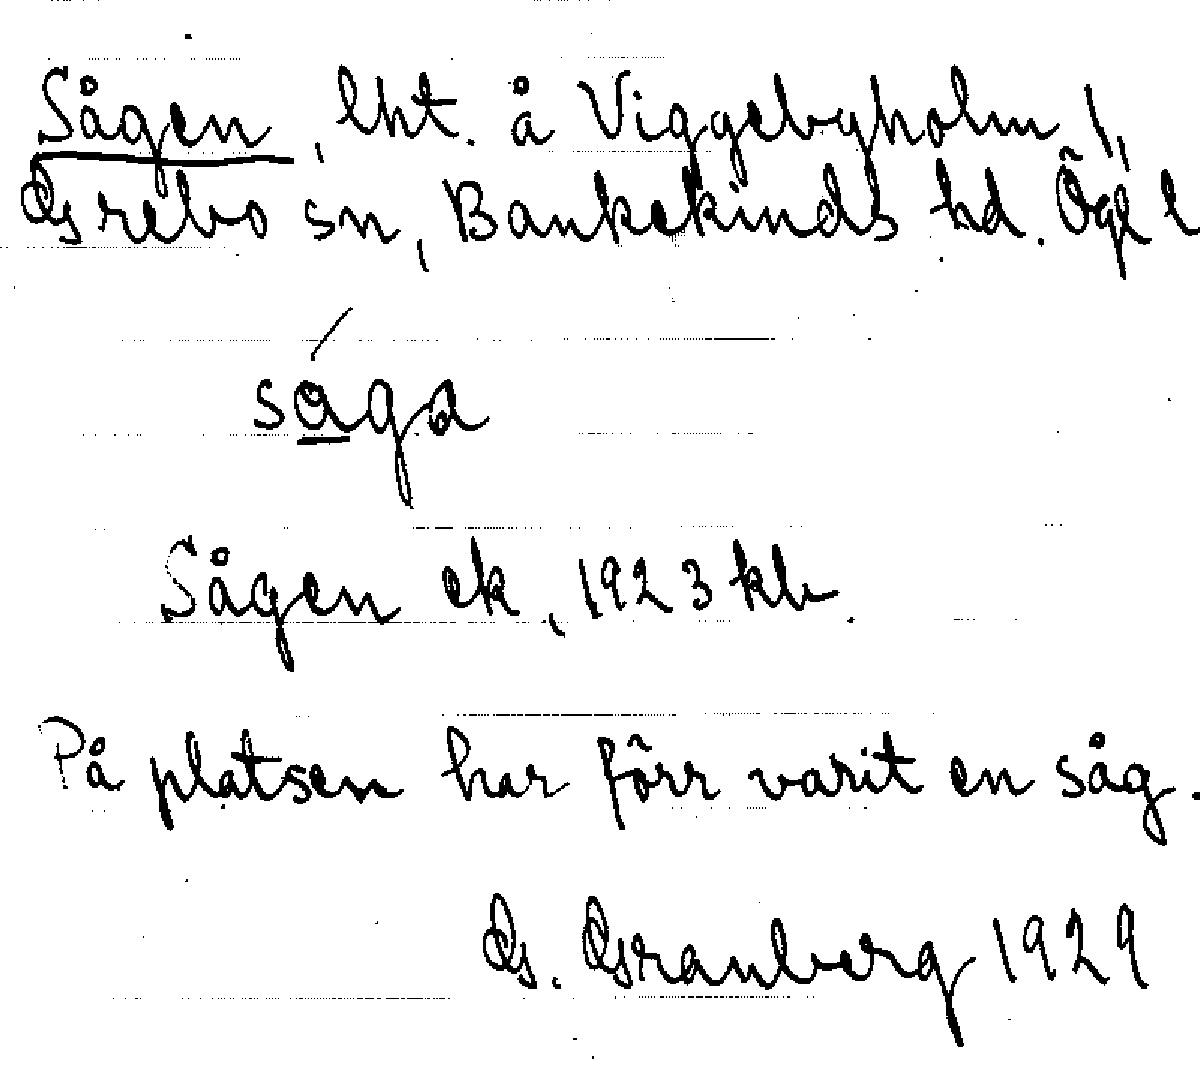 Sågen, lht. å Viggebyholm 1,
Grebo sn, Bankekinds hd. Ögl
såga
Sågen ek, 1923 kb.
På platsen har förr varit en såg.
G. Granberg 1929